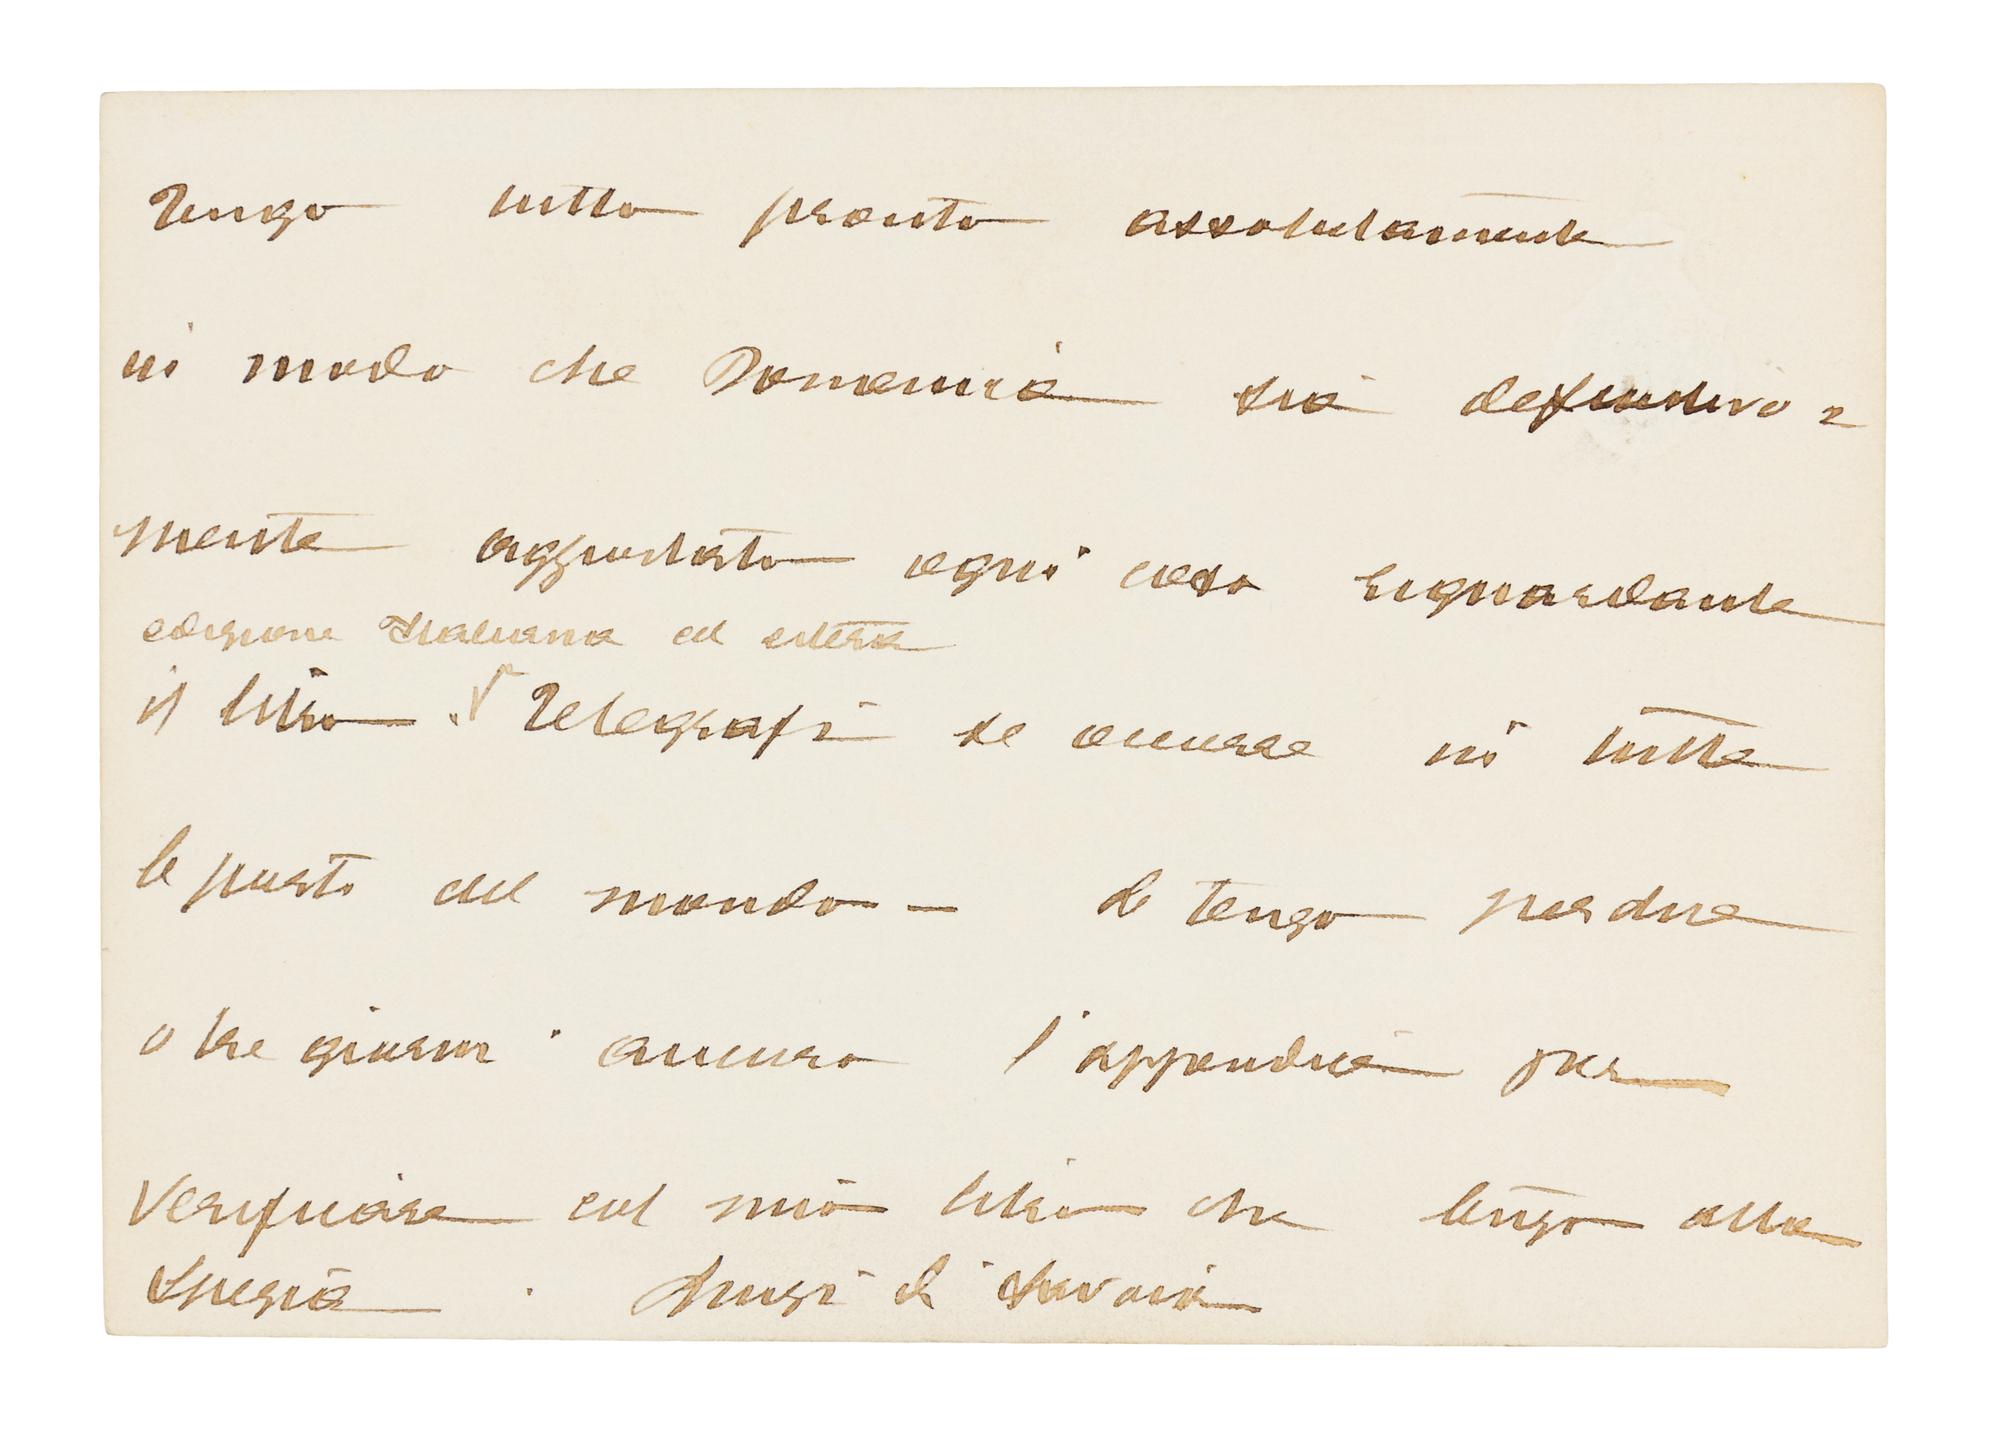 Tengo tutto pronto assolutamente
in modo che Domenica sia definitiva=
mente aggiustato ogni cosa riguardante
edizione Italiana ed estera
il libro. √ Telegrafi se occorre in tutte
le parti del mondo — Se tengo per due
o tre giorni ancora l'appendice per
verificare col mio libro che tengo alla
Spezia. Luigi di Savoia